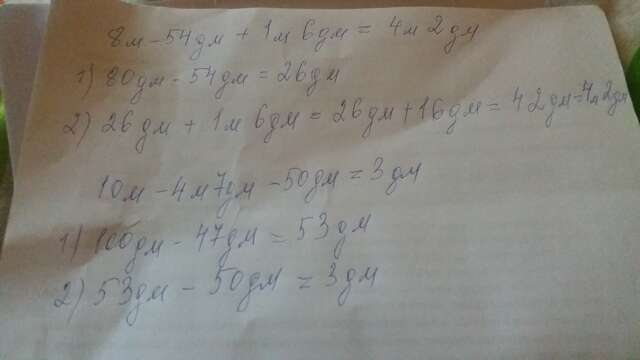 8м - 54дм + 1м 6дм = 4м 2дм
1) 80дм - 54дм = 26дм
2) 26дм + 1м 6дм = 26дм + 16дм = 42дм = 4м 2дм
10м - 4м 7дм - 50дм = 3дм
1) 100дм - 47дм = 53дм
2) 53дм - 50дм = 3дм